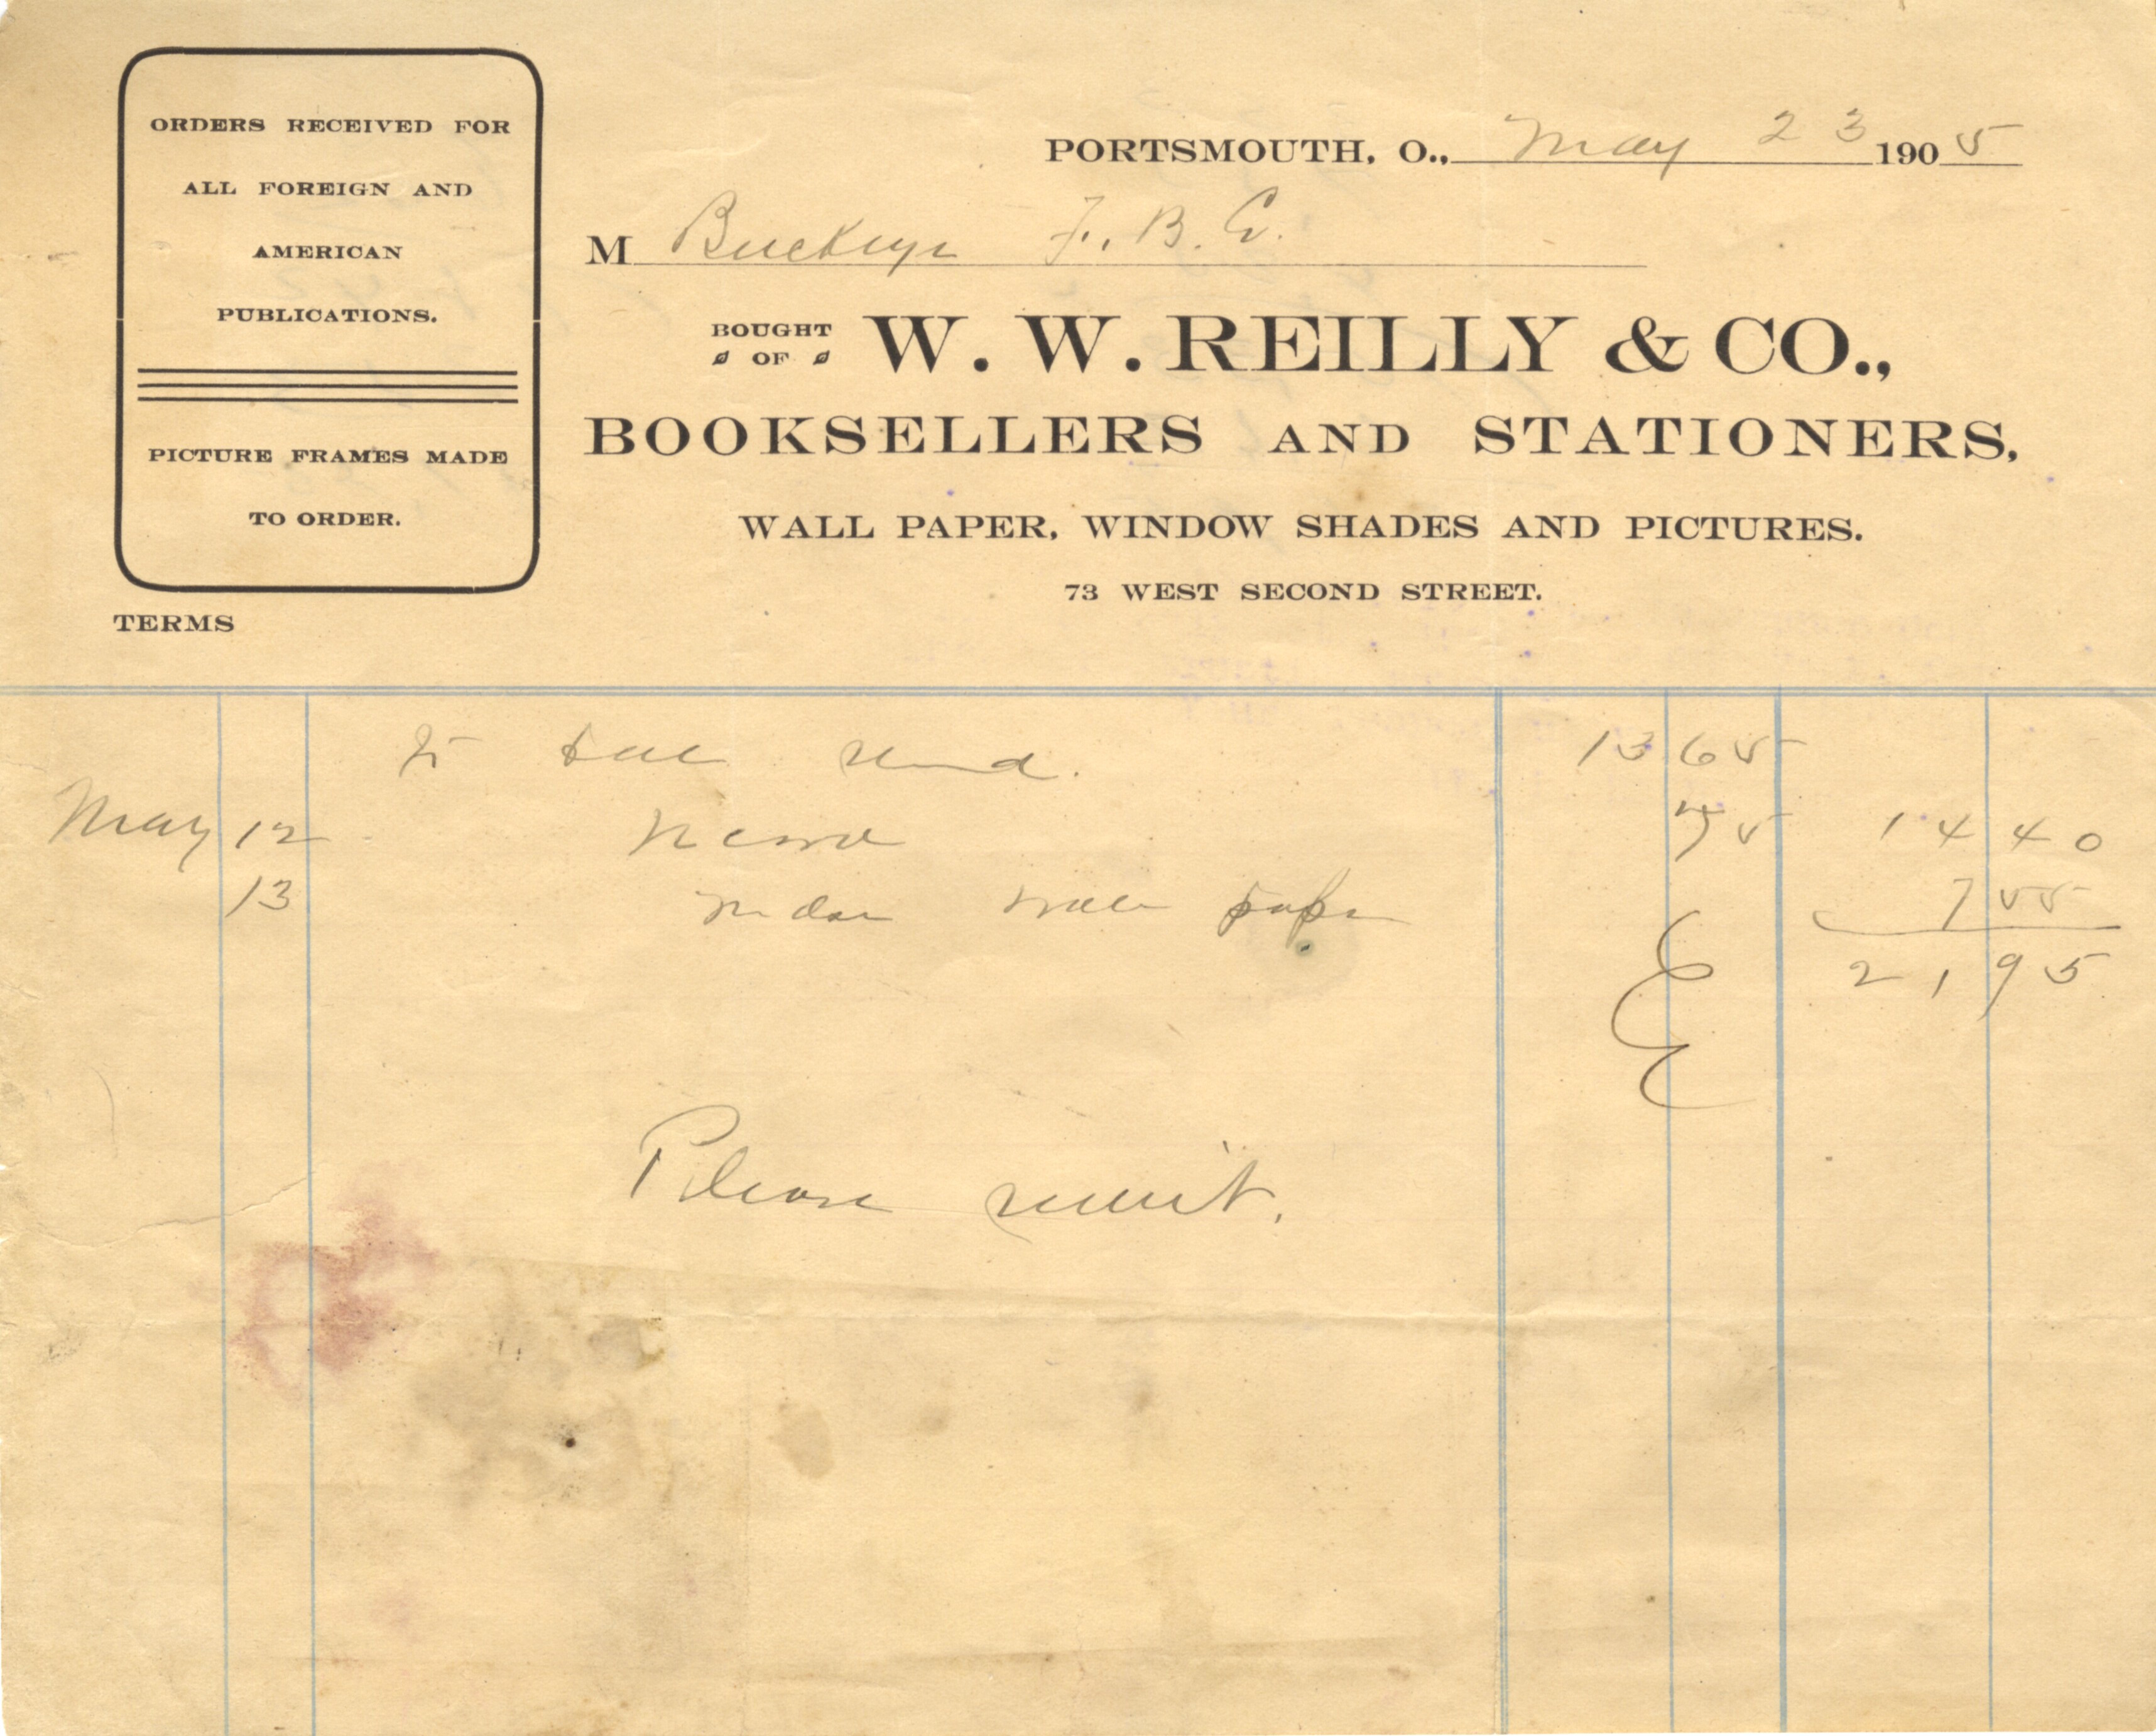 ORDERS RECEIVED FOR
ALL FOREIGN AND
AMERICAN
PUBLICATIONS.
PICTURE FRAMES MADE
TO ORDER.
TERMS
PORTSMOUTH, O., May 23 1905
M Buckeye F. B. Co.
BOUGHT OF W. W. REILLY & CO.,
BOOKSELLERS AND STATIONERS,
WALL PAPER, WINDOW SHADES AND PICTURES.
73 WEST SECOND STREET.
To bill rend. 13 65
May 12 75 14 40
13 wall paper 7 55
21 95
Please remit.